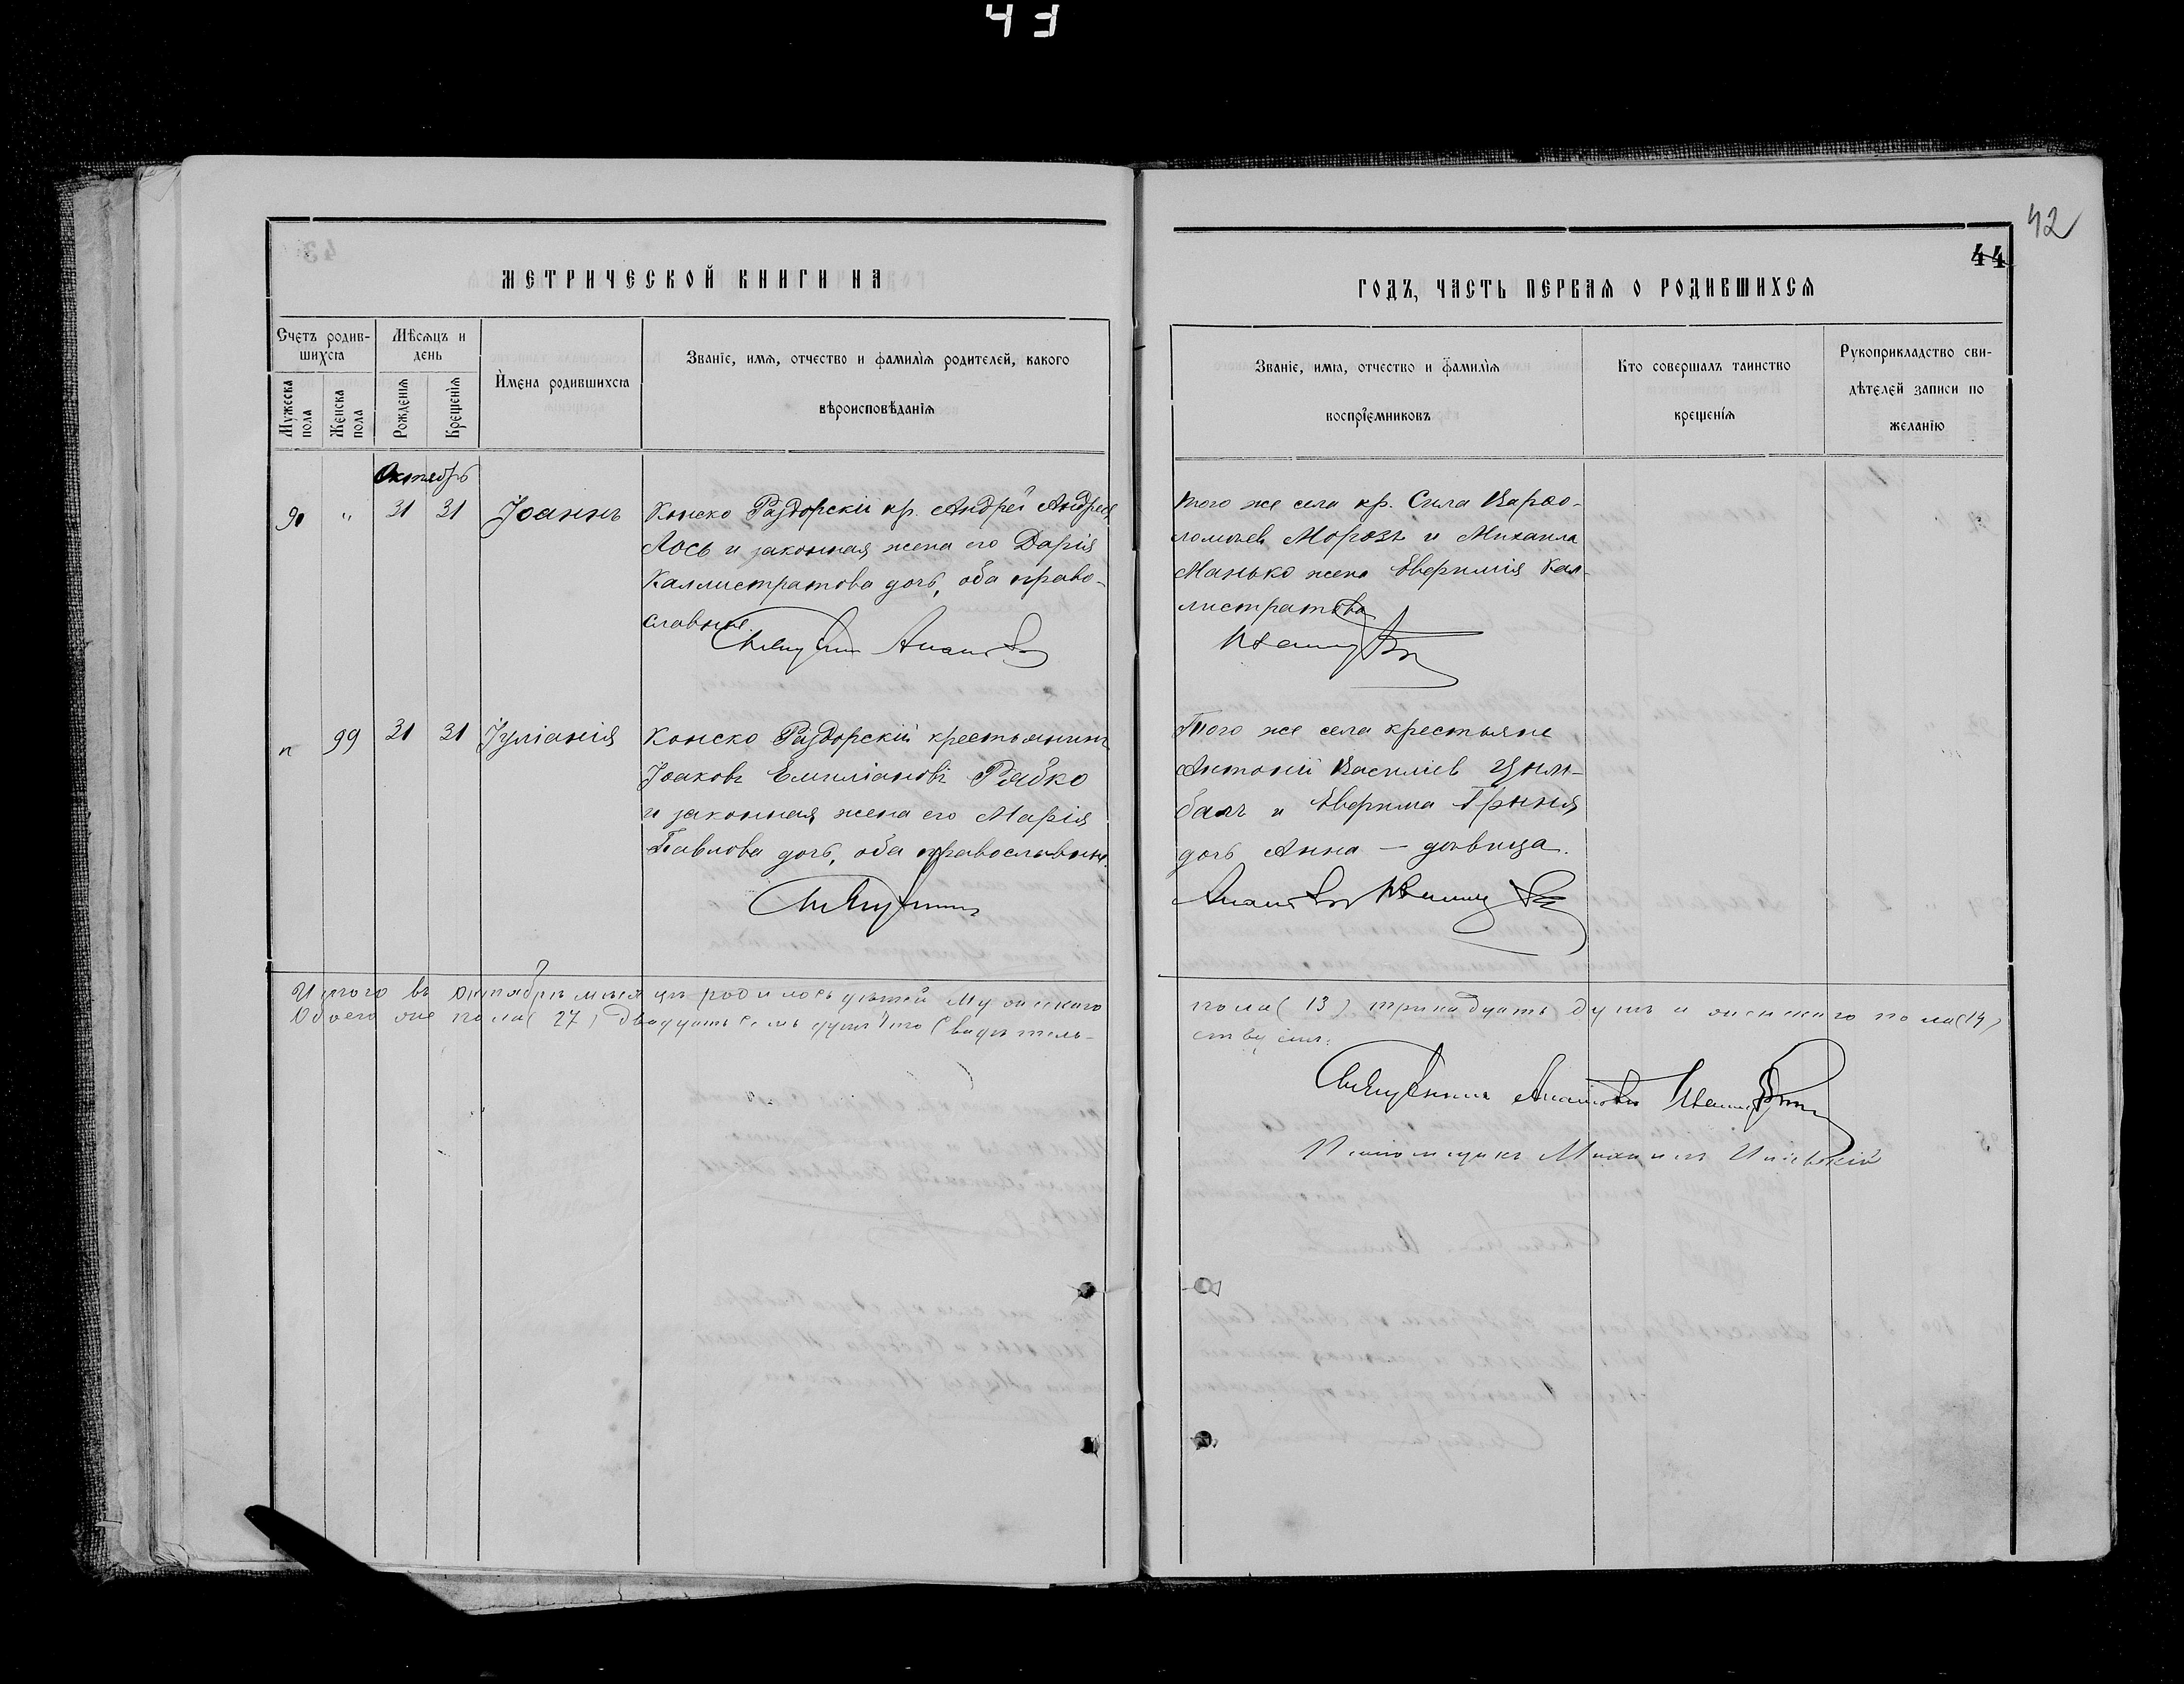 43
42
44
МЕТРИЧЕСКОЙ КНИГИ НА
ГОДЪ, ЧАСТЬ ПЕРВАЯ О РОДИВШИХСЯ
Счетъ родив-
шихся
Мужеска
пола
Женска
пола
Мѣсяцъ и
день
Рожденія
Крещенія
Имена родившихся
Званіе, имя, отчество и фамилія родителей, какого
вѣроисповѣданія
Званіе, имя, отчество и фамилія
воспріемниковъ
Кто совершалъ таинство
крещенія
Рукоприкладство сви-
дѣтелей записи по
желанію
Октябрь
90 " 31 31 Іоаннъ
Конско Раздорскій кр. Андрей Андреев
Лось и законная жена его Дарія
Каллистратова дочь, оба право-
славные
того же села кр. Сила Варѳо-
ломѣев Морозъ и Михаила
Манько жена Евфимія Кал-
листратова
" 99 31 31 Іуліанія
Конско Раздорскій крестьянинъ
Іоаковъ Емиліановъ Рябко
и законная жена его Марія
Павлова дочь, оба православные.
Того же села крестьяне
Антоній Василіев Цим-
балъ и Евфима Гриня
дочь Анна – дѣвица.
Итого въ октябрѣ мѣсяцѣ родилось дѣтей мужескаго
пола (13) тринадцать душъ и женскаго пола (14)
Обоего же пола (27) двадцать семь душъ что свидѣтель-
ствуемъ.
Псаломщикъ Михаилъ